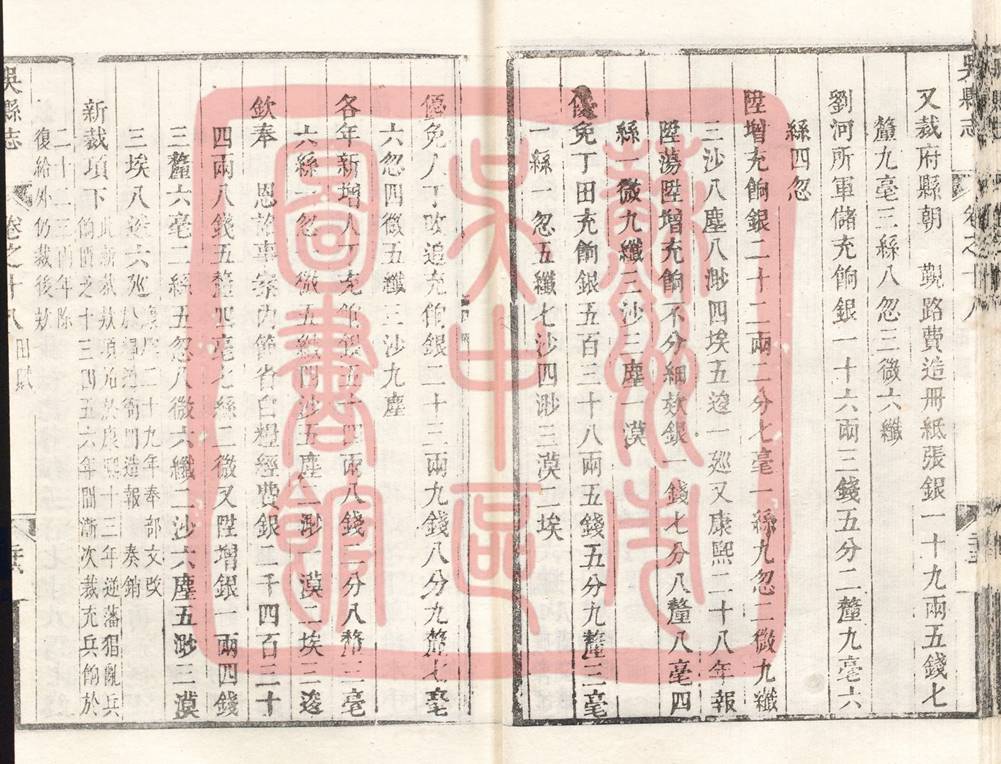 吳縣志
卷之十八
又裁府縣朝　覲路費造冊紙張銀一十九兩五錢七
釐九毫三絲八忽三微六纖
劉河所軍儲充餉銀一十六兩三錢五分二釐九毫六
絲四忽
陞增充餉銀二十二兩二分七毫一絲九忽二微九纖
三沙八塵八渺四埃五逡一廵又康熙二十八年報
陞蕩陞增充餉不分細欵銀一錢七分八釐八毫四
絲一微九纖三沙三塵一漠
優免丁田充餉銀五百三十八兩五錢五分九釐三毫
一絲一忽五纖七沙四渺三漠二埃
優免人丁改追充餉銀二十三兩九錢八分九釐七毫
六忽四微五纖三沙九塵
各年新增人丁充餉銀五十四兩八錢二分八釐三毫
六絲一忽一微五纖四沙五塵二渺一漠二埃三逡
欽奉　恩詔事案內節省白糧經費銀二千四百三十
四兩八錢五分五釐四毫七絲二微又陞增銀一兩四錢
三釐六毫二絲五忽八微六纖二沙六塵五渺三漠
三埃八逡六廵
康熙二十九年奉部文改
於糧道衙門造報　奏銷
新裁項下
此新裁欵項始於康熙十三年逆藩猖亂兵
餉匱乏十三四五六年間漸次裁充兵餉於
二十二兩年除
復給外仍裁後欵
吳縣志
卷之十八　田賦